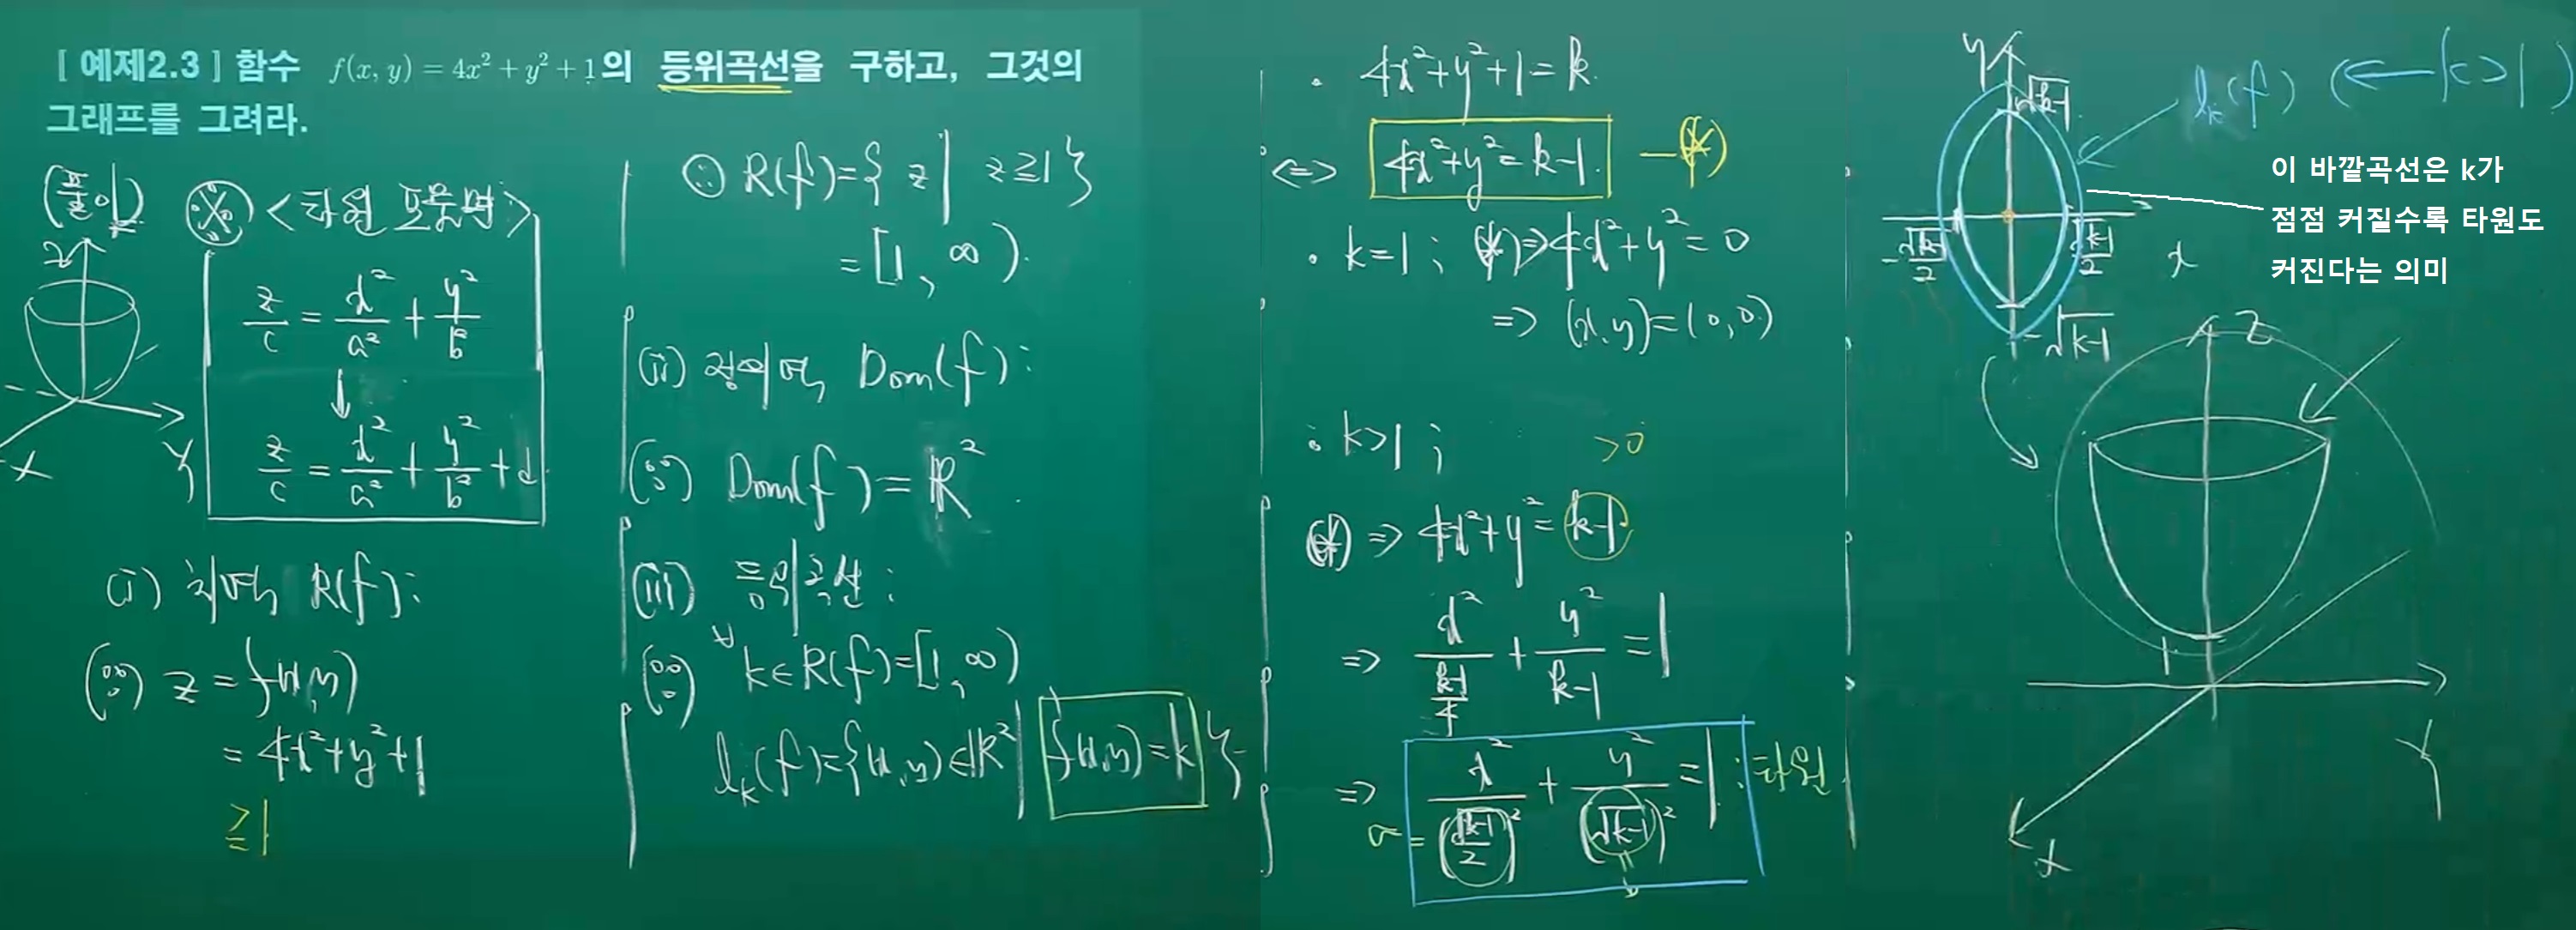 [ 예제2.3 ] 함수 f(x, y) = 4x² + y² + 1의 등위곡선을 구하고, 그것의
그래프를 그려라.
(풀이)
<타원 포물면>
z
x
y
z/c = x²/a² + y²/b²
↓
z/c = x²/a² + y²/b² + d
(i) 치역 R(f):
(∵) z = f(x,y)
= 4x²+y²+1
≧1
∴ R(f)={ z | z≧1 }
= [1, ∞).
(ii) 정의역 Dom(f):
(∵) Dom(f) = ℝ².
(iii) 등위곡선:
(∵) ∀k∈R(f)=[1, ∞)
l_k(f)={(x,y)∈ℝ² | f(x,y)=k}
· 4x²+y²+1=k.
<=> 4x²+y²=k-1. —(*)
· k=1 ; (*)=>4x²+y²=0
=> (x,y)=(0,0)
· k>1 ;
>0
(*) => 4x²+y²=k-1
=> x²/((k-1)/4) + y²/(k-1) = 1
=> x²/(√(k-1)/2)² + y²/(√(k-1))² = 1 : 타원.
a =
b
y
√(k-1)
l_k(f) (← k>1)
이 바깥곡선은 k가
점점 커질수록 타원도
커진다는 의미
-√(k-1)/2
√(k-1)/2
x
-√(k-1)
z
1
y
x